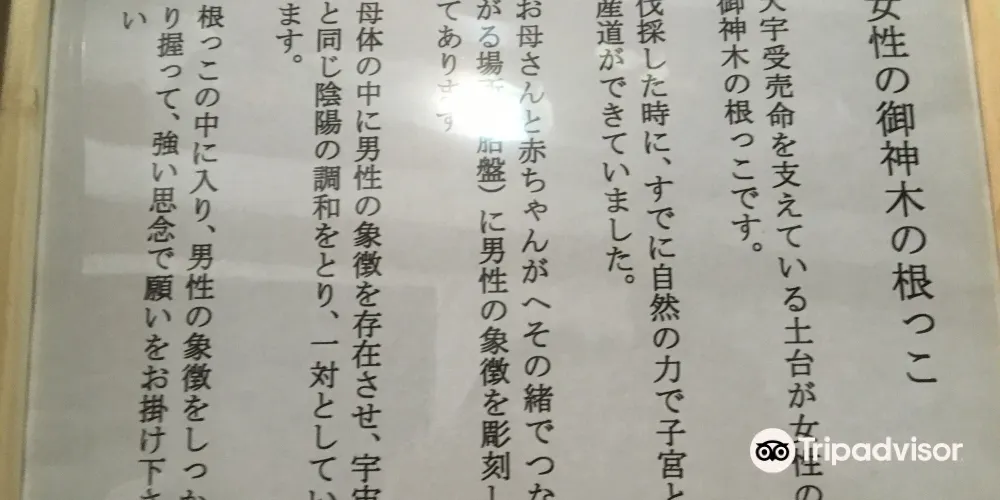 女性の御神木の根っこ
天宇受売命を支えている土台が女性の
御神木の根っこです。
伐採した時に、すでに自然の力で子宮と
産道ができていました。
お母さんと赤ちゃんがへその緒でつな
がる場所 胎盤）に男性の象徴を彫刻し
てあります
母体の中に男性の象徴を存在させ、宇宙
と同じ陰陽の調和をとり、一対としてい
ます。
根っこの中に入り、男性の象徴をしっか
り握って、強い思念で願いをお掛け下さ
い
Tripadvisor